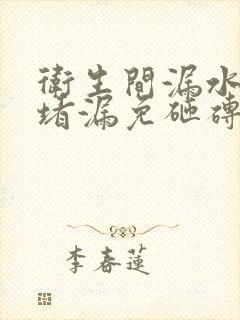 衛生間漏水
堵漏免砸磚
李春蓮